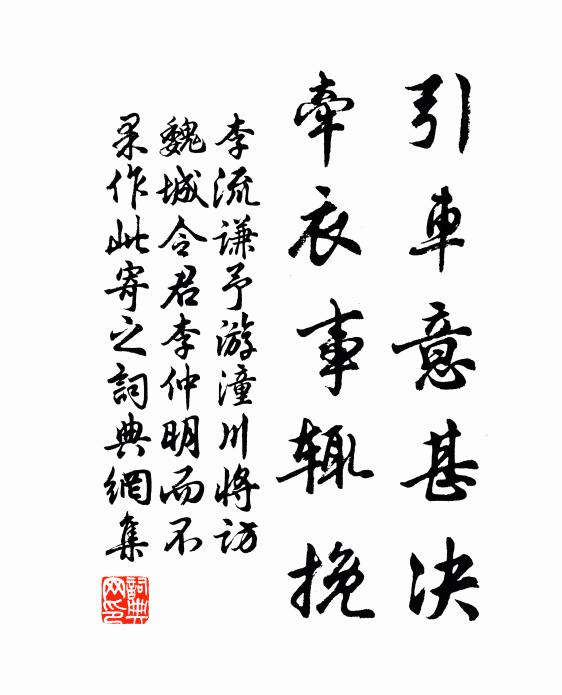 引車意甚决
牽衣事辄挽
李流謙予游潼川將訪
魏城令君李仲明而不
果作此寄之詞典網集
詞典网印